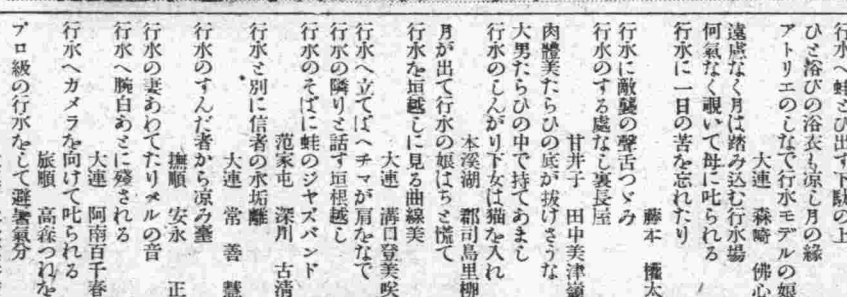 行水へ蛙とび出す下駄の上
ひと浴びの浴衣も凉し月の緣
アトリエのしなで行水モデルの娘
大連 森崎 佛心
遠慮なく月は踏み込む行水場
何氣なく覗いて母に叱られる
行水に一日の苦を忘れたり
藤本 權太
行水に敵襲の聲舌つゞみ
行水のする處なし裏長屋
甘井子 田中美津嶺
肉體美たらひの底が拔けさうな
大男たらひの中で持てあまし
行水のしんがり下女は猫を入れ
本溪湖 郡司島里柳
月が出て行水の娘はちと慌て
行水を垣越しに見る曲線美
大連 溝口登美咲
行水へ立てばヘチマが肩をなで
行水の隣りと話す垣根越し
行水のそばに蛙のジヤズバンド
范家屯 深川 古淸
行水と別に信者の水垢離
大連 常 善慧
行水のすんだ者から凉み臺
撫順 安永 正
行水の妻あわてたりメルの音
行水へ腕白あとに殘される
大連 阿南百千春
行水へカメラを向けて叱られる
旅順 高森つれを
プロ級の行水をして避暑氣分